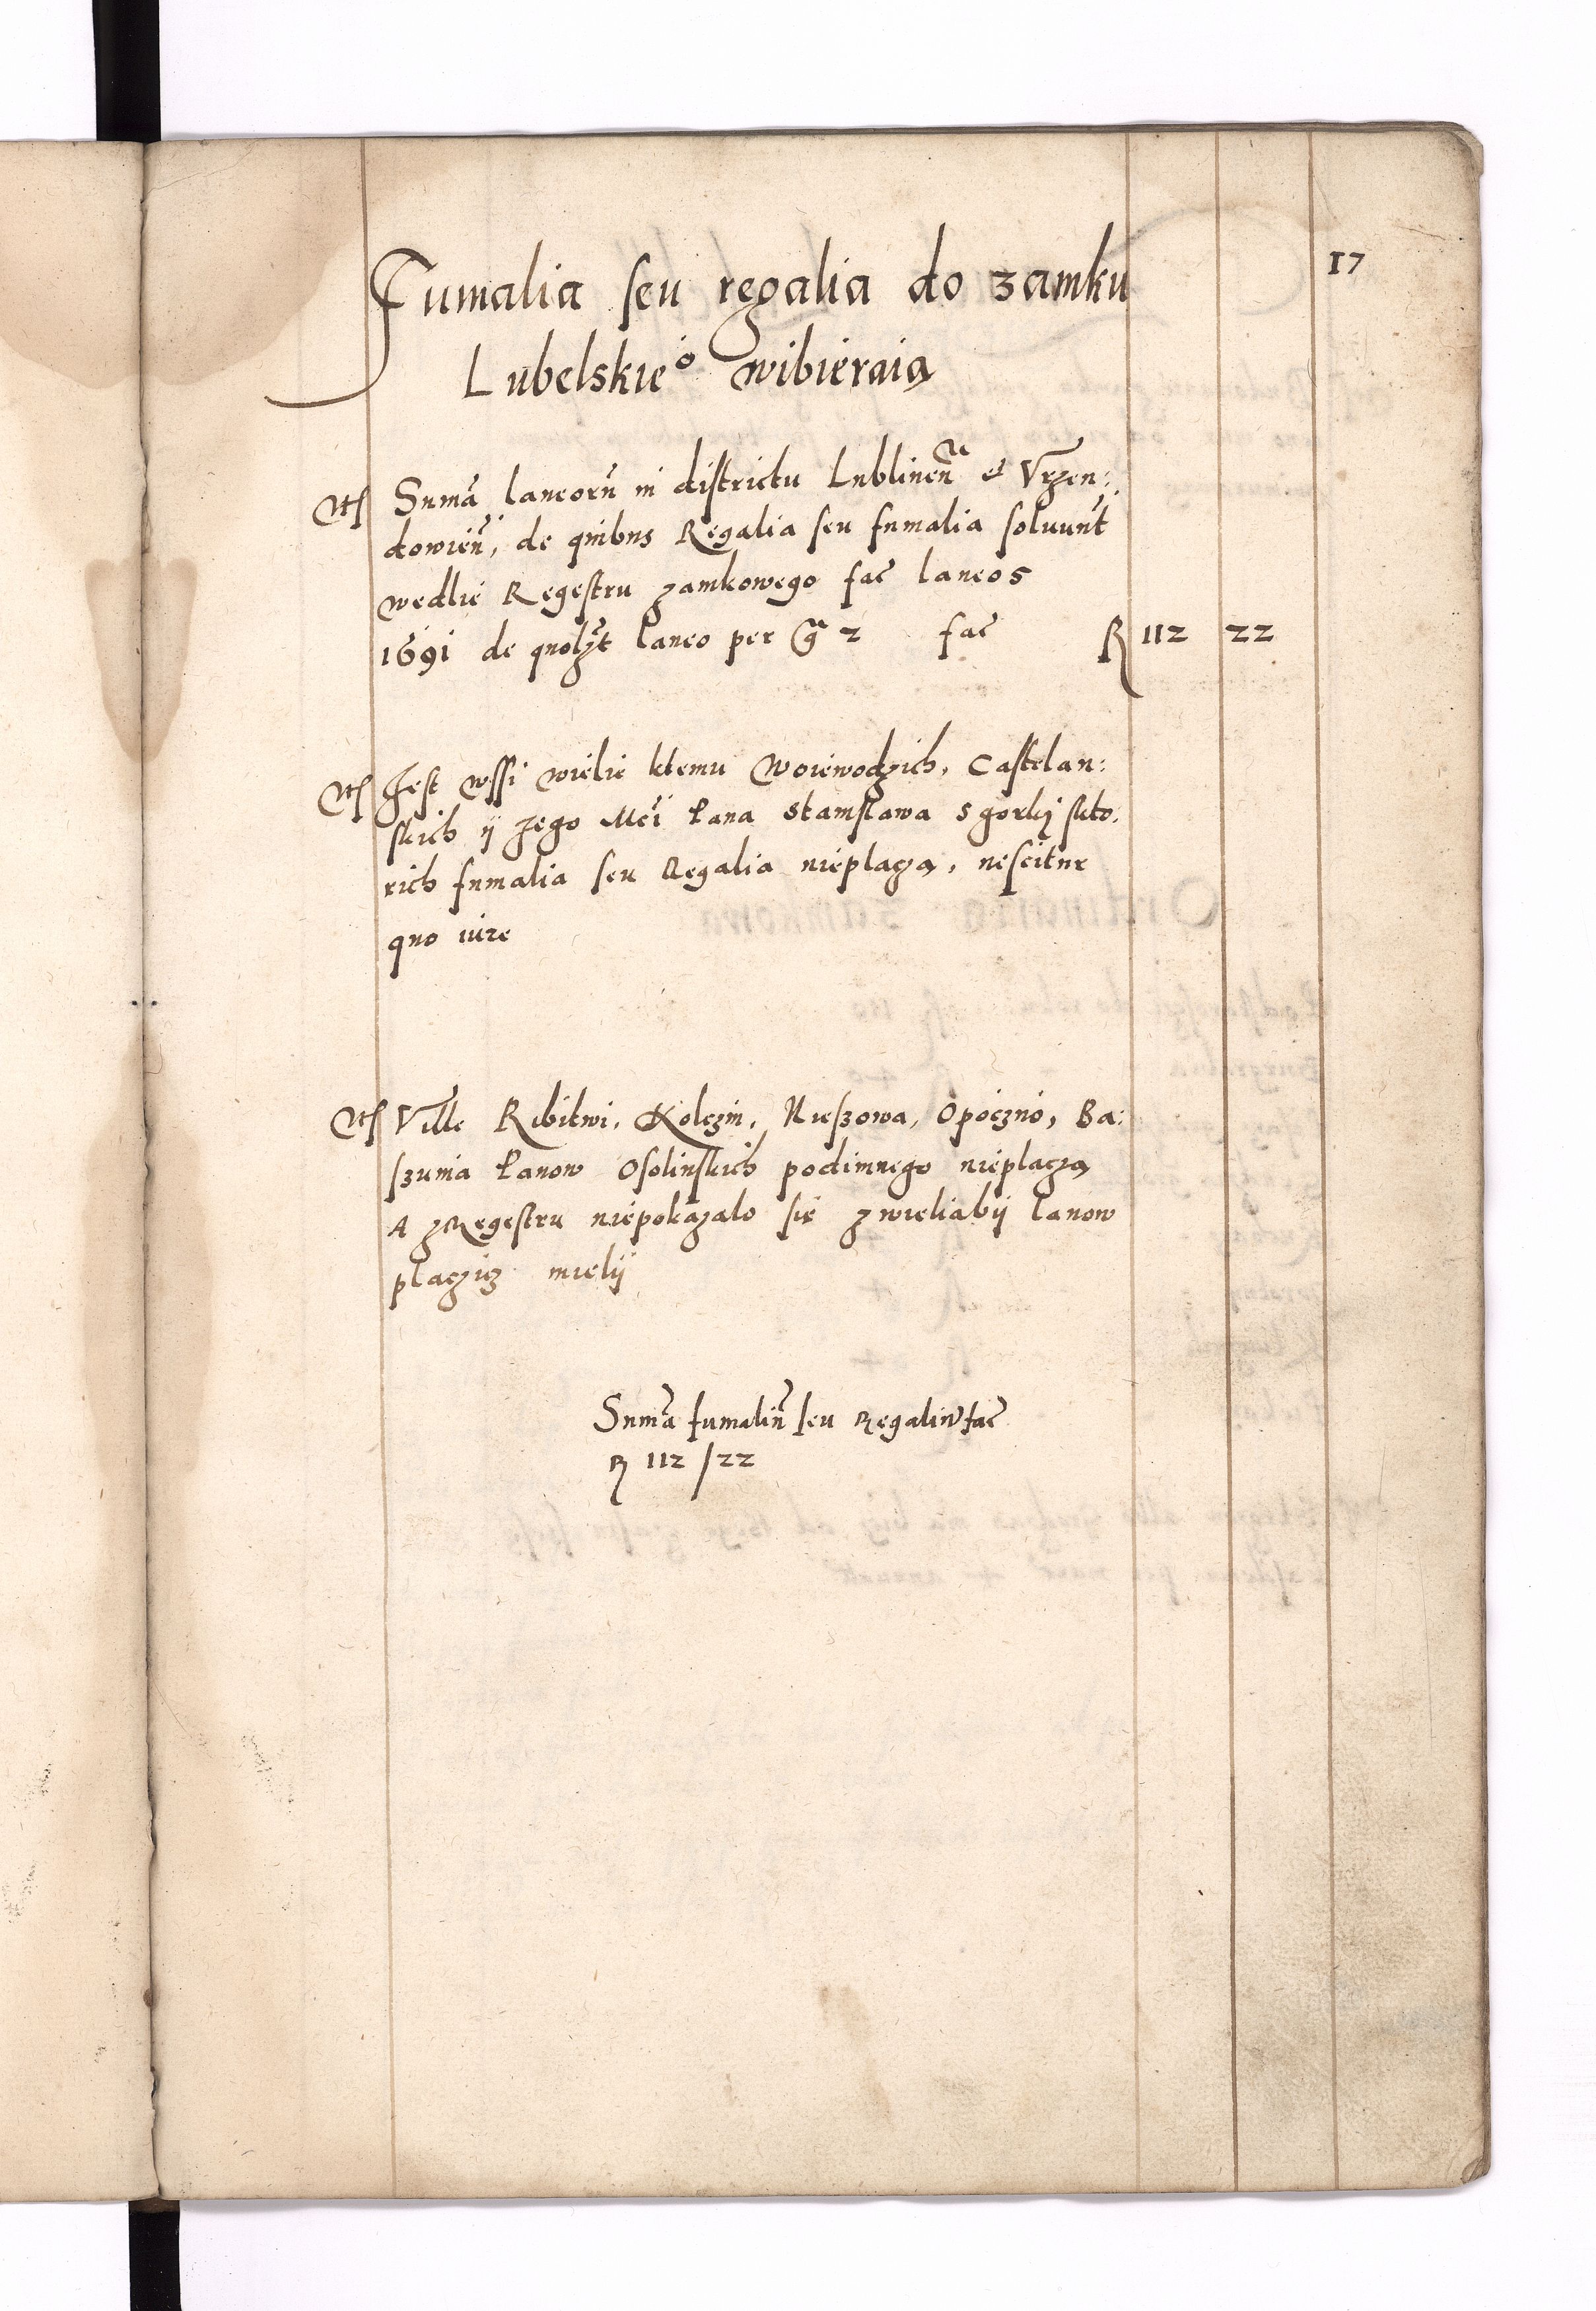 17
Fumalia seu regalia do zamku
Lubelskie° wibieraią
Itē Sumā laneorū in districtu Lublineñ et Vrzen:
dowieñ, de quibus Regalia seu fumalia soluunt
wedlie Regestru zamkowego fac laneos
1691 de quolzt laneo per gr 2 fac fl 112 22
Itē Jest wssi wielie ktemu Woiewodzich, Castelan:
skich ij Jego Mci Pana Stanislawa Sgorkj skto.
rich fumalia seu Regalia nieplaczą, nescitur
quo iure
Itē Ville Ribitwi, Kolczin, Nieszowa, Opoczno, Ba:
szunia Panow Osolinskich podimnego nieplaczą
A zRegestru niepokazalo sie zwieliabij lanow
placzicz mielij
Sumā fumaliū seu Regaliū fac
fl 112 / 22